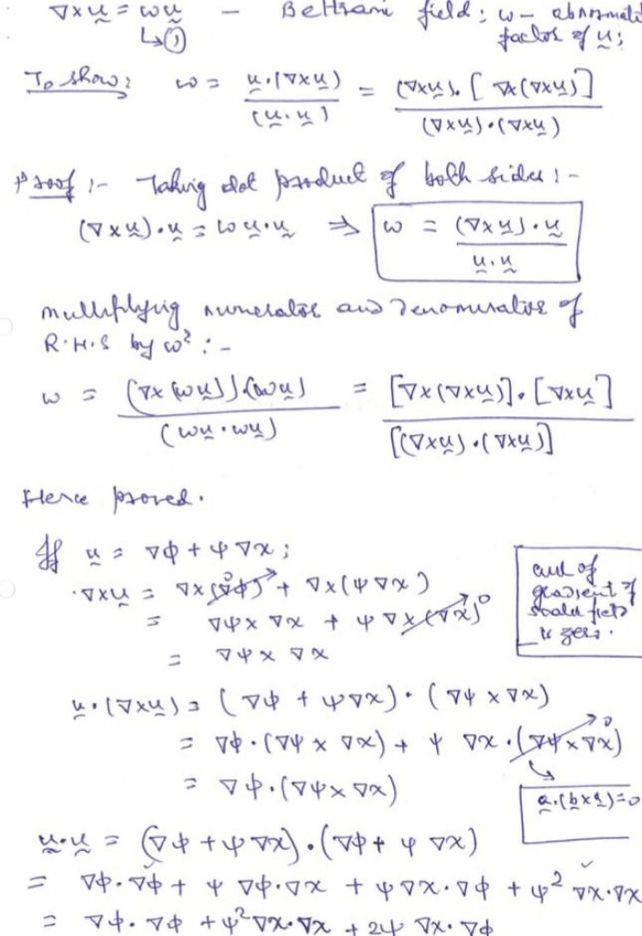 ∇×ṵ = ωṵ — Beltrami field; ω – abnormali
↳①
factor of ṵ;
To show: ω = ṵ·(∇×ṵ) / (ṵ·ṵ) = (∇×ṵ)·[∇×(∇×ṵ)] / (∇×ṵ)·(∇×ṵ)
Proof :- Taking dot product of both sides :-
(∇×ṵ)·ṵ = ω ṵ·ṵ ⇒ ω = (∇×ṵ)·ṵ / ṵ·ṵ
Multiplying numerator and denominator of
R.H.S by ω² :-
ω = (∇×(ωṵ))·(ωṵ) / (ωṵ·ωṵ) = [∇×(∇×ṵ)]·[∇×ṵ] / [(∇×ṵ)·(∇×ṵ)]
Hence proved.
If ṵ = ∇φ + ψ∇χ;
∇×ṵ = ∇×(∇φ)⁰ + ∇×(ψ∇χ)
= ∇ψ×∇χ + ψ∇×(∇χ)⁰
= ∇ψ×∇χ
curl of
gradient of
scalar field
is zero.
ṵ·(∇×ṵ) = (∇φ + ψ∇χ)·(∇ψ×∇χ)
= ∇φ·(∇ψ×∇χ) + ψ ∇χ·(∇ψ×∇χ)⁰
= ∇φ·(∇ψ×∇χ)
a̰·(b̰×a̰)=0
ṵ·ṵ = (∇φ + ψ∇χ)·(∇φ + ψ∇χ)
= ∇φ·∇φ + ψ∇φ·∇χ + ψ∇χ·∇φ + ψ²∇χ·∇χ
= ∇φ·∇φ + ψ²∇χ·∇χ + 2ψ ∇χ·∇φ